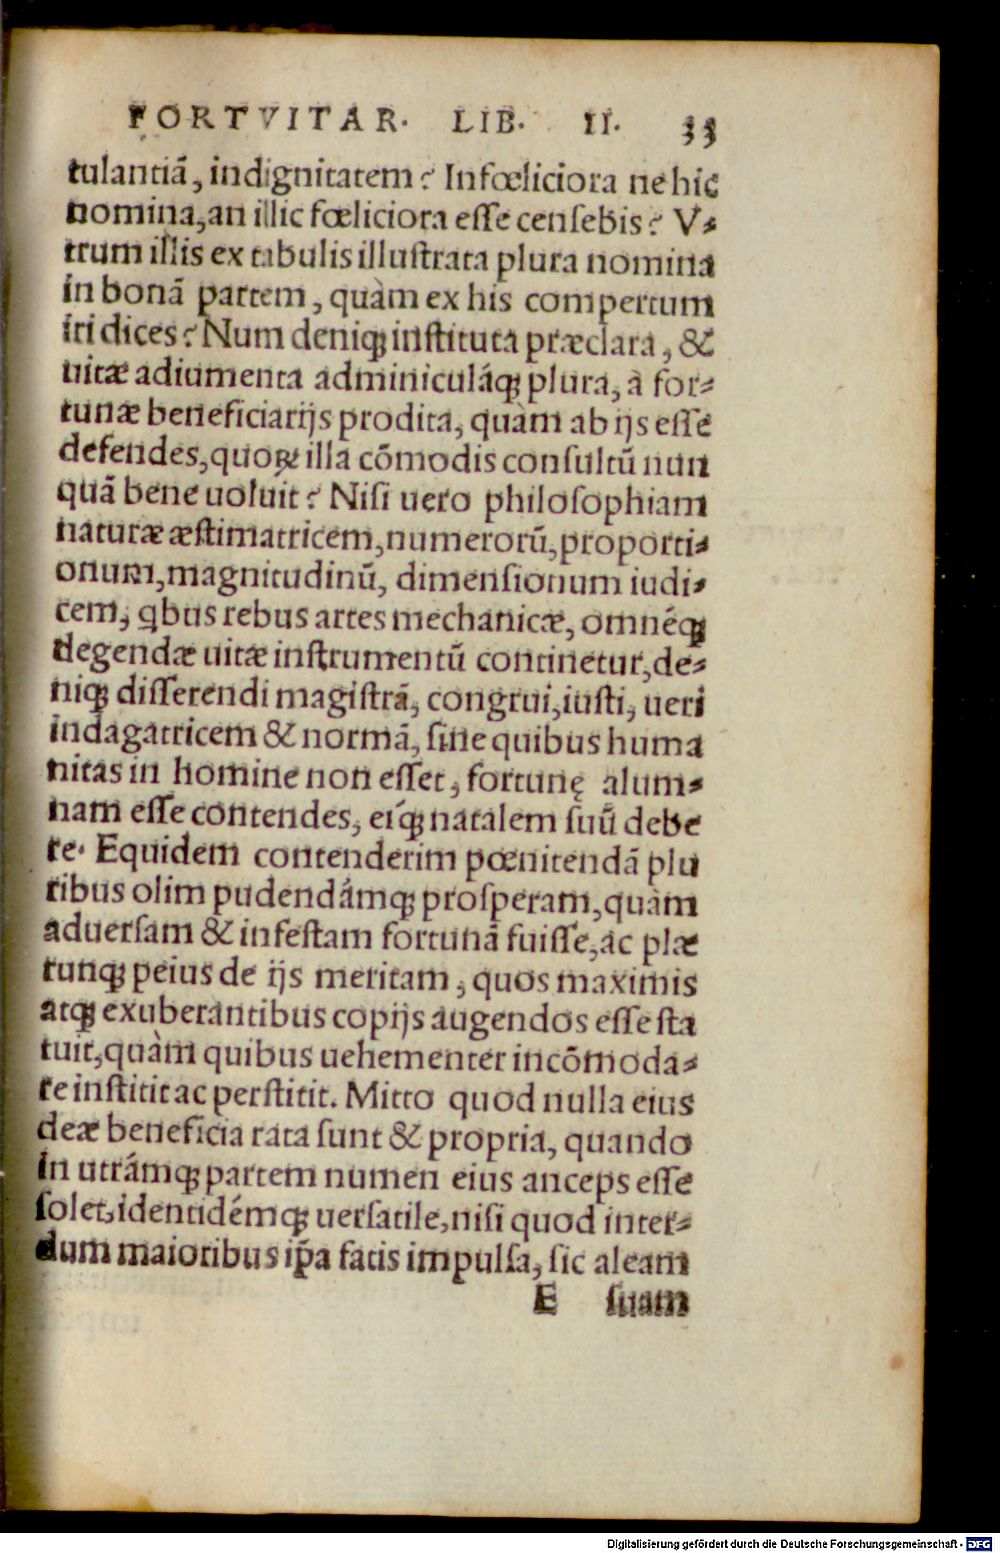 FORTVITAR. LIB. II. 33
tulantiā, indignitatem? Infœliciora ne hic
nomina, an illic fœliciora esse censebis? V-
trum illis ex tabulis illustrata plura nomina
in bonā partem, quàm ex his compertum
iri dices? Num deniq; instituta præclara, &
uitæ adiumenta adminiculáq; plura, à for-
tunæ beneficiarijs prodita, quàm ab ijs esse
defendes, quoꝝ illa cōmodis consultū nun
quā bene uoluit? Nisi uero philosophiam
naturæ æstimatricem, numerorū, proporti-
onum, magnitudinū, dimensionum iudi-
cem, ꝗbus rebus artes mechanicæ, omnéq;
degendæ uitæ instrumentū continetur, de-
niq; disserendi magistrā, congrui, iusti, ueri
indagatricem & normā, sine quibus huma
nitas in homine non esset, fortunę alum-
nam esse contendes, eíq; natalem suū debe
re. Equidem contenderim pœnitendā plu
ribus olim pudendámq; prosperam, quàm
aduersam & infestam fortunā fuisse, ac plæ
runq; peius de ijs meritam, quos maximis
atq; exuberantibus copijs augendos esse sta
tuit, quàm quibus uehementer incōmoda-
re institit ac perstitit. Mitto quod nulla eius
deæ beneficia rata sunt & propria, quando
in utrámq; partem numen eius anceps esse
solet, identidémq; uersatile, nisi quod inter-
dum maioribus ip̄a fatis impulsa, sic aleam
E suam
Digitalisierung gefördert durch die Deutsche Forschungsgemeinschaft - DFG